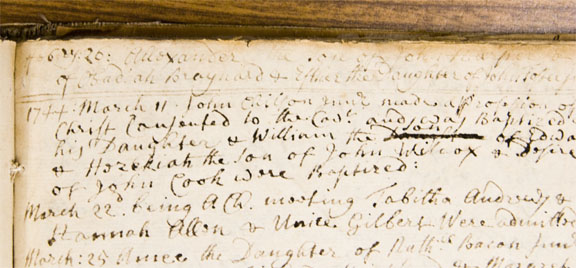 Alexander the Son of John
of Obadiah Braynard & Esther the Daughter of John
1744: March 11. John Chilson Junr made a profession of
Christ Consented to the Covt and was Baptized
his Daughter & William the Son of Edwa
& Hezekiah the Son of John Wilcox & Desire
of John Cook were Baptized:
March 22d. being a Ch. meeting Tabitha Andrews &
Hannah Allen & Unice Gilbert Were admitted
March: 25 Amee the Daughter of Nathll Bacon Junr
& Margaret